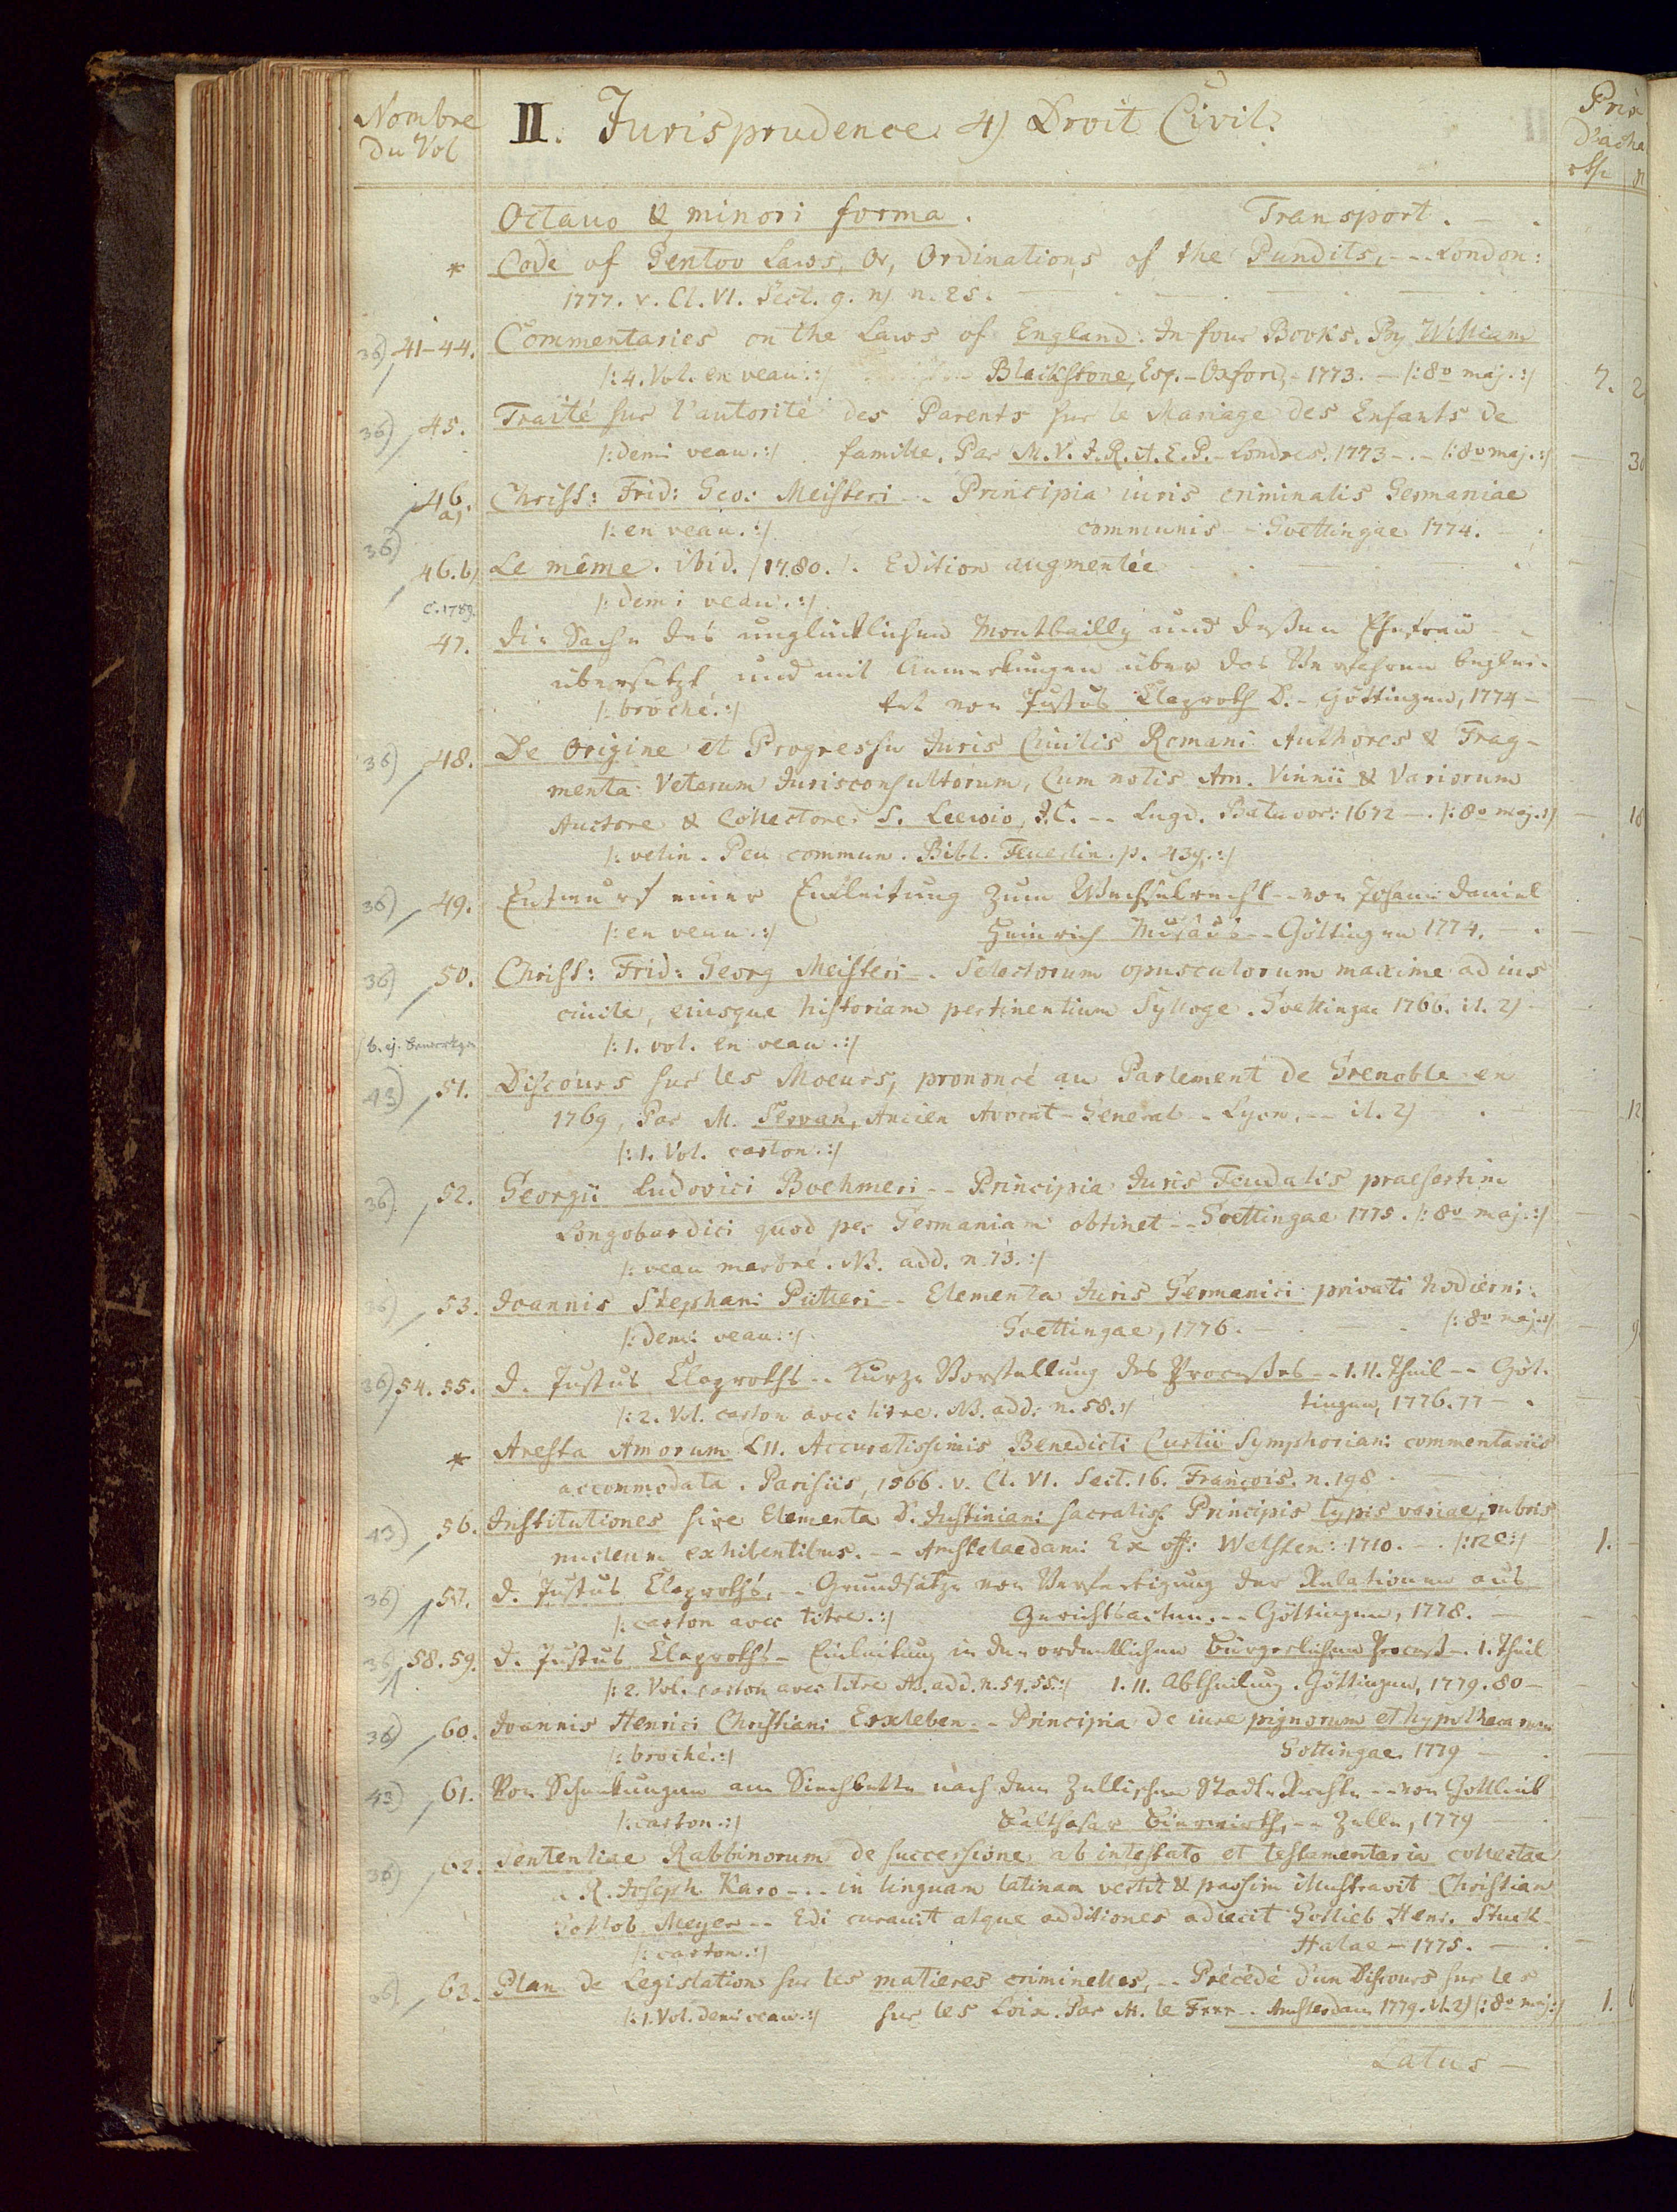 Nombre
du Vol
II. Jurisprudence. 4) Droit Civil.
Prix
d'acha
Octavo & minori forma. Transport. — .
* Code of Gentoo Laws, Or, Ordinations of the Pundits, - - - London:
1777. v. Cl. VI. Sect. 9. n) n. 25.
36) 41-44. Commentaries on the Laws of England. In four Books. By William
/: 4. Vol. en veau. :/ Blackstone, Esq. - Oxford, - 1773. — /: 8º maj. :/ 7. 2
36) 45. Traité sur l'autorité des Parents sur le Mariage des Enfants de
/: demi veau. :/ famille. Par M. V. J. R. A. E. P. - Londres. 1773 - . - /: 8º maj. :/ — 30
46. a) Christ: Frid: Geo: Meisteri - - Principia iuris criminalis Germaniae
/: en veau. :/ communis - Goettingae 1774. —
36)
46. b) Le même. ibid. /1780. /. Edition augmentée
/: demi veau. :/
c. 1789.
47. Die Sache des unglücklichen Montbailly und deßen Ehefrau - -
übersetzt und mit Anmerkungen über das Verfahren beglei-
/: broché. :/ tet von Justus Claproth D. - Göttingen, 1774 -
36) 48. De Origine et Progressu Juris Civilis Romani Authores & Frag-
menta Veterum Jurisconsultorum, Cum notis Arn. Vinnii & Variorum
Auctore & Collectore S. Leewio, J.C. - - Lugd. Batavor: 1672 - . /: 8º maj. :/ — 18
/: velin. Peu commun. Bibl. Feuerlin. p. 439. :/
36) 49. Entwurf einer Einleitung zum Wechselrecht - - von Johann Daniel
/: en veau. :/ Heinrich Musäus - - Göttingen 1774.
36) 50. Christ: Frid: Georg Meisteri - . Selectorum opusculorum maxime ad ius
civile, eiusque historiam pertinentium Sylloge. Goettingae 1766. il. 2)
/: 1. vol. en veau. :/
43) 51. Discours sur les Moeurs, prononcé au Parlement de Grenoble en
1769, Par M. Servan, Ancien Avocat - General - - Lyon. - - il. 2) 12
/: 1. Vol. carton. :/
36) 52. Georgii Ludovici Boehmeri - - Principia Juris Feudalis praesertim
Longobardici quod per Germaniam obtinet - - Goettingae 1775. /: 8º maj. :/
/: veau marbré. NB. add. n 73. :/
36) 53. Joannis Stephani Pütteri - - Elementa Juris Germanici privati hodierni.
/: demi veau. :/ Goettingae, 1776. — /: 8º maj. :/ — 9
36) 54. 55. D. Justus Claproths - - Kurze Vorstellung des Processes - - 1. II. Theil - - Göt-
/: 2. Vol. carton avec titre. NB. add. n. 58. :/ tingen, 1776. 77 - .
* Aresta Amorum LII. Accuratissimis Benedicti Curtii Symphoriani commentariis
accommodata. Parisiis, 1566. v. Cl. VI. Sect. 16. François. n. 198
43) 56. Institutiones sive Elementa D. Justiniani sacratiss. Principis typis variae, rubris
nucleum exhibentibus. - - Amstelaedami Ex off: Wetsten: 1710. - . /: 12º :/ 1. -
36) 57. D. Justus Claproths, - - Grundsätze von Verfertigung der Relationen aus
/: carton avec titre. :/ Gerichtsacten. - - Göttingen, 1778.
36) 58. 59. D. Justus Claproths - Einleitung in den ordentlichen bürgerlichen Proceß - . 1. Theil
/: 2. Vol. carton avec titre NB. add. n. 54. 55. :/ 1. II. Abtheilung. Göttingen, 1779. 80 -
36) 60. Joannis Henrici Christiani Erxleben - - Principia de iure pignorum et hypothecarum
/: broché. :/ Gottingae. 1779 —
43) 61. Von Schenkungen am Siechbette nach dem Zellischen Stadt-Rechte - - von Gottlieb
/: carton. :/ Balthasar - - Zelle, 1779
36) 62. Sententiae Rabbinorum de successione ab intestato et testamentaria collectae
a R. Joseph Karo - - . in linguam latinam vertit & passim illustravit Christian
Gottlob Meyer - - Edi curauit atque additiones adiecit Gotlieb Henr. Stuck
/: carton. :/ Halae - 1775. — .
36) 63. Plan de Legislation sur les matieres criminelles, - - Précédé d'un Discours sur les
/: 1. Vol. demi veau. :/ sur les Loix. Par M. le F*** - - Amsterdam 1779. il. 2) /: 8º maj: :/ 1. 6
Latus —